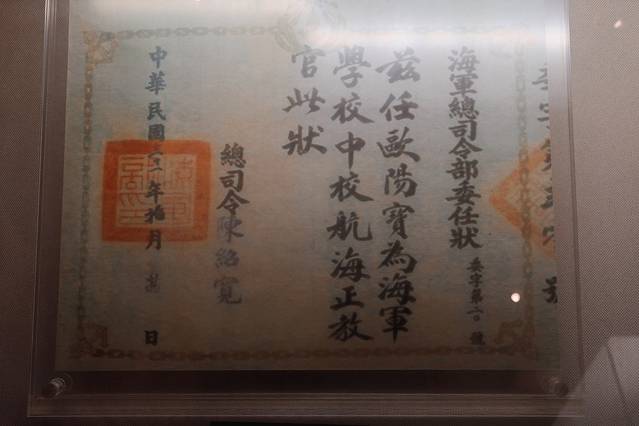 海軍總司令部委任狀 委字第二〇號
茲任歐陽寶為海軍
學校中校航海正教
官此狀
總司令陳紹寬
中華民國 年拾月 日